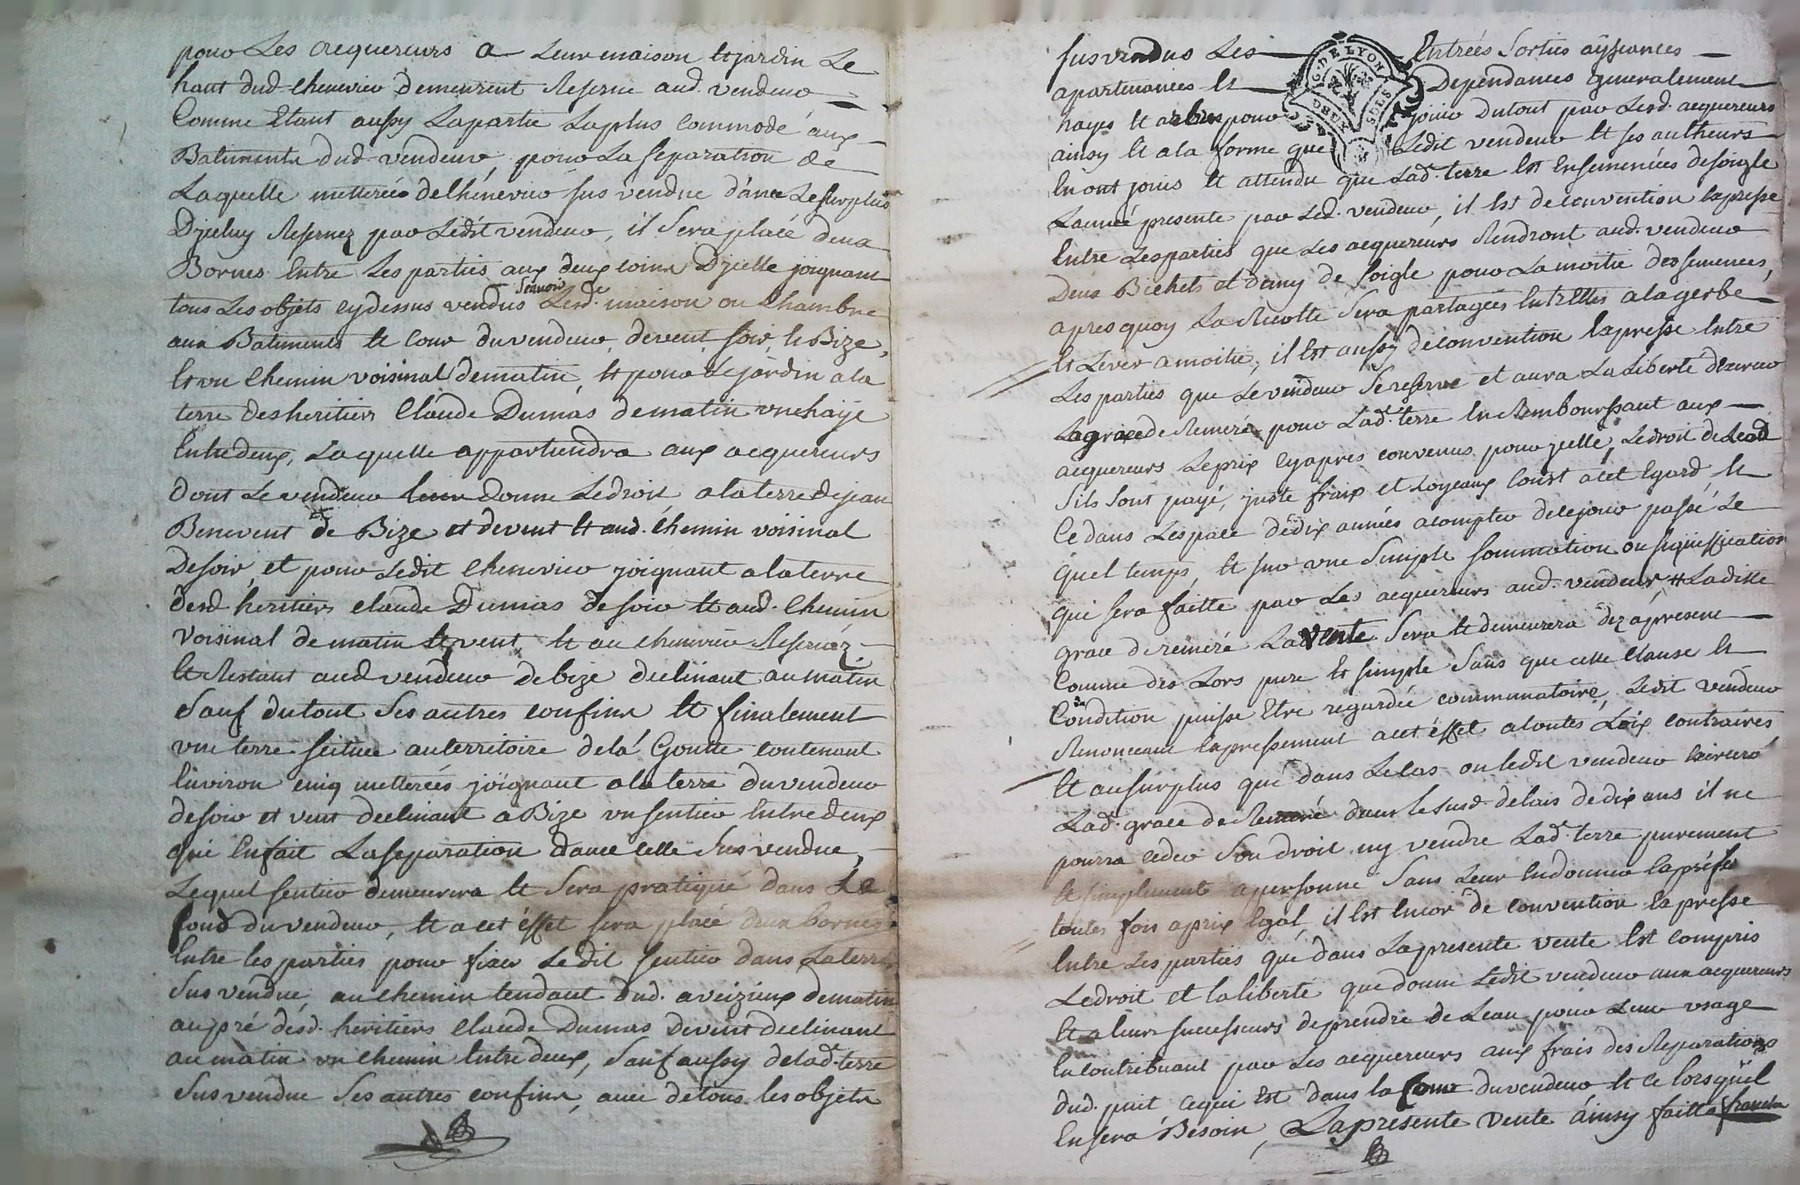 pour Les acquereurs a Leur maison et jardin Le
haut dud. chenevier demeurent Reservé aud. vendeur
Comme Etant aussy La partie La plus Commode aux
Batiments dud. vendeur, pour La separation de
Laquelle metterée de chenevier sus vendue d'avec Le surplus
D'jceluy Reservez par Ledit vendeur, il Sera placé deux
Bornes Entre Les parties aux deux coins D'jcelle joignant
tous Les objets cydessus vendus Lesd. maison ou Chambre
aux Batiments et Cour du vendeur, devent soir et Bize,
Et un chemin voisinal de matin, et pour Le jardin a la
terre des heritiers Claude Dumas de matin une haÿe
Entredeux, Laquelle appartiendra aux acquereurs
dont Le vendeur Leur donne Le droit a la terre de jean
Benevent de Bize et devent et aud. chemin voisinal
De soir, et pour Ledit chenevier joignant a la terre
desd. heritiers claude Dumas de soir et aud. chemin
voisinal de matin et vent, et au chenevier Reservéz
Et Restant aud. vendeur de bize declinant au matin
Sauf du tout Ses autres confins Et finalement
une terre scituée au territoire de la Goutte contenant
Environ cinq metterées joignant a la terre du vendeur
de soir et vent declinant a Bize un sentier Entredeux
qui En fait La separation d'avec celle Sus vendue,
Lequel sentier demeurera et Sera pratiqué dans Le
fond du vendeur, et a cet éffet sera placé deux bornes
Entre les parties pour fixer Ledit sentier dans La terre
Sus vendue, au chemin tendant dud. a veizieux de matin
au pré desd. heritiers Claude Dumas devent declinant
au matin un chemin Entre deux, Sauf aussy de lad. terre
Sus vendue Ses autres confins, avec de tous les objets
sus vendus Les Entrées Sorties aÿsances
apartenances et Dependances generalement
hayes et arbres pour jouir du tout par Lesd. acquereurs
ainsy et a la forme que Ledit vendeur et ses autheurs
En ont jouis et attendu que Lad. terre Est Ensemencées de soigle
L'année presente par Led. vendeur, il Est de convention Expresse
Entre Les parties que Les acquereurs Rendront aud. vendeur
Deux Bichets et demy de soigle pour La moitié des semences,
apres quoy La Recolte Sera partagées Entr'Elles a la gerbe
et Lever a moitié, il Est aussy de convention Expresse Entre
Les parties que Le vendeur Se reserve et aura La Liberté d'Exercer
La grace de Remeré pour Lad. terre En Remboursant aux
acquereurs Le prix cyapres convenus pour jcelle, Le droit de Lod
s'ils sont payé, juste fraix et Loyeaux Coust a cet Egard, Et
Ce dans L'espace de dix années a compter de ce jour passé Le
quel temps, Et sur une Simple sommation ou signiffication
qui sera faitte par Les acquereurs aud. vendeur, Ladite
grace de remeré La vente Sera et demeurera dez a present
Comme des Lors pure et simple Sans que cette Clause Et
Condition puisse Etre regardée comminatoire, Ledit vendeur
Renonceant Expressement a cet éffet a toutes Loix contraires
Et au surplus que dans Le Cas ou Ledit vendeur Exercera
Lad. grace de Remeré dans le susd. delais de dix ans il ne
pourra ceder Son droit ny vendre Lad. terre purement
et simplement a personne Sans Leur En donner la préfce
toutes fois a prix Egal, il Est Encor de convention Expresse
Entre Les parties que dans La presente vente Est compris
Le droit et la liberté que donne Ledit vendeur aux acquereurs
Et a leurs successeurs de prendre de L'eau pour Leur usage
En contribuant par Les acquereurs aux frais des Reparations
dud. puit ce qui Est dans la Cour du vendeur Et ce lorsqu'il
En sera Besoin, La presente vente áinsy faitte
GÉN. DE LYON